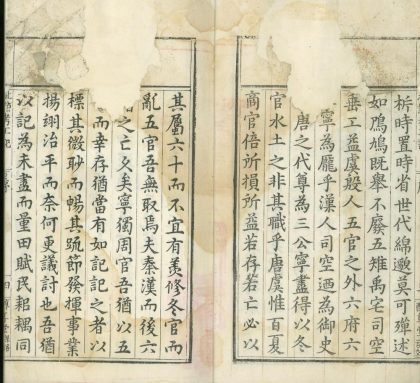 析時置時省世代綿邈莫可殫述
如鳲鳩既舉不廢五雉禹宅司空
垂工益虞殷人五官之外六府六
寧為龐乎漢人司空迺為御史
唐之代尊為三公寧盡得以冬
官水土之非其職乎唐虞惟百夏
商官倍所損所益若存若亡必以
其屬六十而不宜有羨修冬官而
亂五官吾無取焉夫秦漢而後六
之亡久矣寧獨周官吾猶以五
而幸存猶當有如記記之者以
標其微眇而暢其䟽節發揮事業
揚翊治平而奈何更議討也吾猶
以記為未盡而量田賦民耜耦同